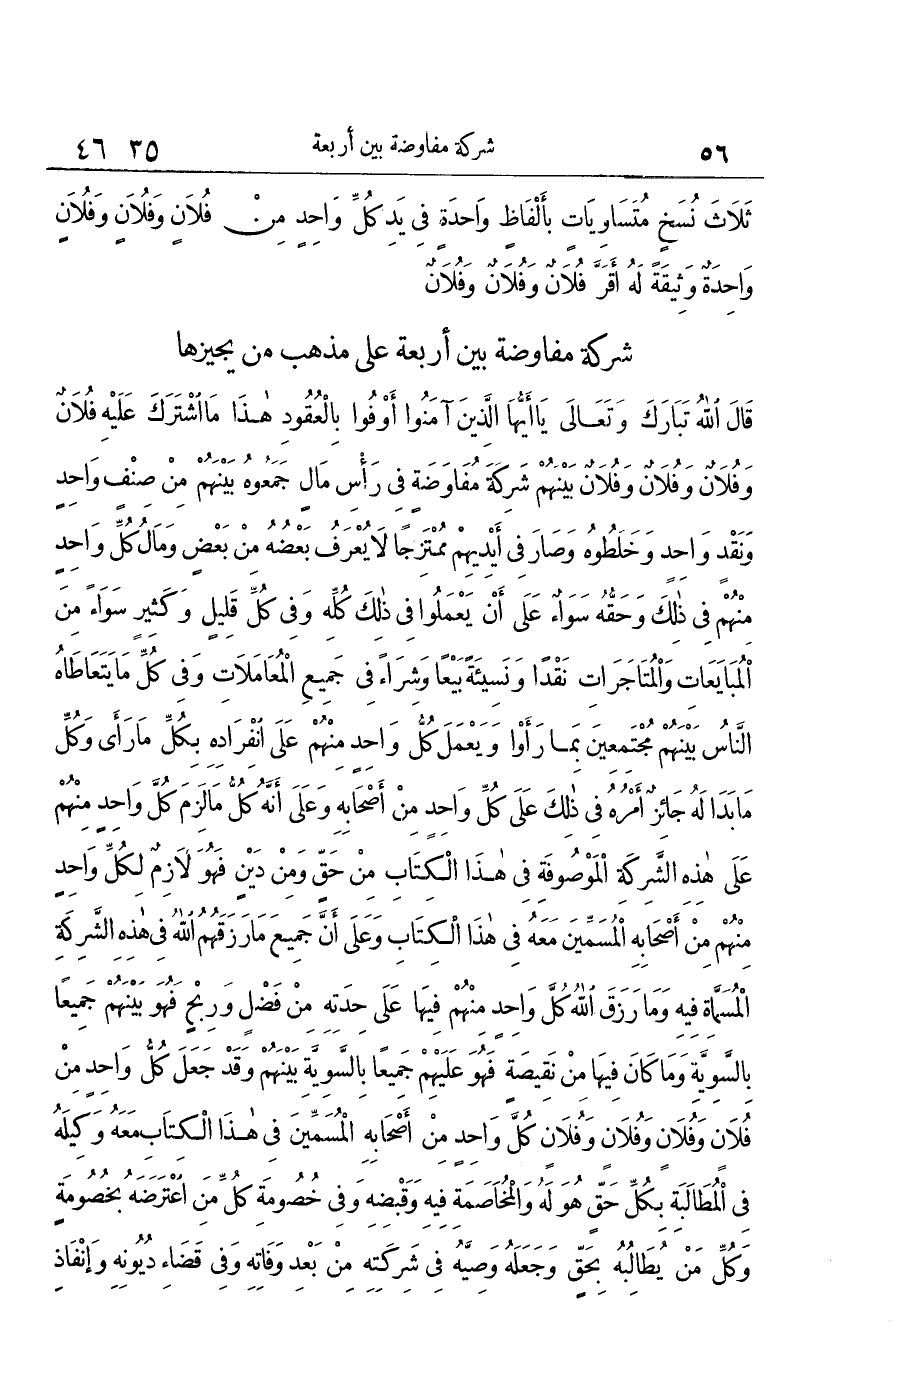 ٥٦ شركة مفاوضة بين أربعة ٣٥ ٤٦
ثَلَاثَ نُسَخٍ مُتَسَاوِيَاتٍ بِأَلْفَاظٍ وَاحِدَةٍ فِى يَدِ كُلِّ وَاحِدٍ مِنْ فُلَانٍ وَفُلَانٍ وَفُلَانٍ
وَاحِدَةٌ وَثِيقَةً لَهُ أَقَرَّ فُلَانٌ وَفُلَانٌ وَفُلَانٌ
شركة مفاوضة بين أربعة على مذهب من يجيزها
قَالَ ٱللّٰهُ تَبَارَكَ وَتَعَالَى يَاأَيُّهَا الَّذِينَ آمَنُوا أَوْفُوا بِالْعُقُودِ هٰذَا مَااشْتَرَكَ عَلَيْهِ فُلَانٌ
وَفُلَانٌ وَفُلَانٌ وَفُلَانٌ بَيْنَهُمْ شَرِكَةَ مُفَاوَضَةٍ فِى رَأْسِ مَالٍ جَمَعُوهُ بَيْنَهُمْ مِنْ صِنْفٍ وَاحِدٍ
وَنَقْدٍ وَاحِدٍ وَخَلَطُوهُ وَصَارَ فِى أَيْدِيهِمْ مُمْتَزِجًا لَا يُعْرَفُ بَعْضُهُ مِنْ بَعْضٍ وَمَالُ كُلِّ وَاحِدٍ
مِنْهُمْ فِى ذٰلِكَ وَحَقُّهُ سَوَاءٌ عَلَى أَنْ يَعْمَلُوا فِى ذٰلِكَ كُلِّهِ وَفِى كُلِّ قَلِيلٍ وَكَثِيرٍ سَوَاءً مِنَ
الْمُبَايَعَاتِ وَالْمُتَاجَرَاتِ نَقْدًا وَنَسِيئَةً بَيْعًا وَشِرَاءً فِى جَمِيعِ الْمُعَامَلَاتِ وَفِى كُلِّ مَا يَتَعَاطَاهُ
النَّاسُ بَيْنَهُمْ مُجْتَمِعِينَ بِمَا رَأَوْا وَيَعْمَلَ كُلُّ وَاحِدٍ مِنْهُمْ عَلَى انْفِرَادِهِ بِكُلِّ مَارَأَى وَكُلِّ
مَا بَدَا لَهُ جَائِزٌ أَمْرُهُ فِى ذٰلِكَ عَلَى كُلِّ وَاحِدٍ مِنْ أَصْحَابِهِ وَعَلَى أَنَّهُ كُلُّ مَالَزِمَ كُلَّ وَاحِدٍ مِنْهُمْ
عَلَى هٰذِهِ الشَّرِكَةِ الْمَوْصُوفَةِ فِى هٰذَا الْكِتَابِ مِنْ حَقٍّ وَمِنْ دَيْنٍ فَهُوَ لَازِمٌ لِكُلِّ وَاحِدٍ
مِنْهُمْ مِنْ أَصْحَابِهِ الْمُسَمِّينَ مَعَهُ فِى هٰذَا الْكِتَابِ وَعَلَى أَنَّ جَمِيعَ مَارَزَقَهُمُ اللّٰهُ فِى هٰذِهِ الشَّرِكَةِ
الْمُسَمَّاةِ فِيهِ وَمَا رَزَقَ اللّٰهُ كُلَّ وَاحِدٍ مِنْهُمْ فِيهَا عَلَى حِدَتِهِ مِنْ فَضْلٍ وَرِبْحٍ فَهُوَ بَيْنَهُمْ جَمِيعًا
بِالسَّوِيَّةِ وَمَا كَانَ فِيهَا مِنْ نَقِيصَةٍ فَهُوَ عَلَيْهِمْ جَمِيعًا بِالسَّوِيَّةِ بَيْنَهُمْ وَقَدْ جَعَلَ كُلُّ وَاحِدٍ مِنْ
فُلَانٍ وَفُلَانٍ وَفُلَانٍ وَفُلَانٍ كُلَّ وَاحِدٍ مِنْ أَصْحَابِهِ الْمُسَمِّينَ فِى هٰذَا الْكِتَابِ مَعَهُ وَكِيلَهُ
فِى الْمُطَالَبَةِ بِكُلِّ حَقٍّ هُوَ لَهُ وَالْمُخَاصَمَةِ فِيهِ وَقَبْضِهِ وَفِى خُصُومَةِ كُلِّ مَنِ اعْتَرَضَهُ بِخُصُومَةٍ
وَكُلِّ مَنْ يُطَالِبُهُ بِحَقٍّ وَجَعَلَهُ وَصِيَّهُ فِى شَرِكَتِهِ مِنْ بَعْدِ وَفَاتِهِ وَفِى قَضَاءِ دُيُونِهِ وَإِنْفَاذِ